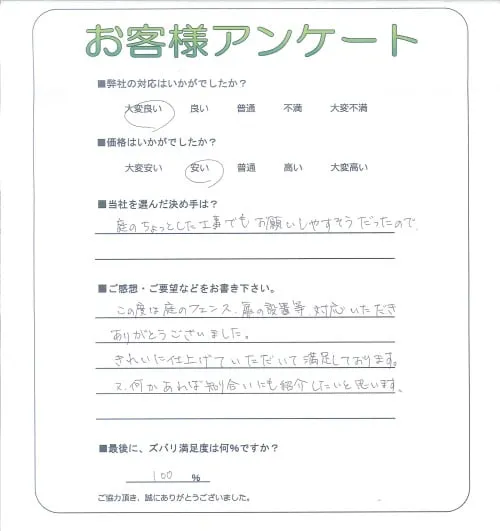 お客様アンケート
■弊社の対応はいかがでしたか？
大変良い 良い 普通 不満 大変不満
■価格はいかがでしたか？
大変安い 安い 普通 高い 大変高い
■当社を選んだ決め手は？
庭のちょっとした工事でもお願いしやすそうだったので、
■ご感想・ご要望などをお書き下さい。
この度は庭のフェンス、扉の設置等、対応いただき
ありがとうございました。
きれいに仕上げていただいて満足しております。
又、何かあれば知り合いにも紹介したいと思います。
■最後に、ズバリ満足度は何％ですか？
100 ％
ご協力頂き、誠にありがとうございました。